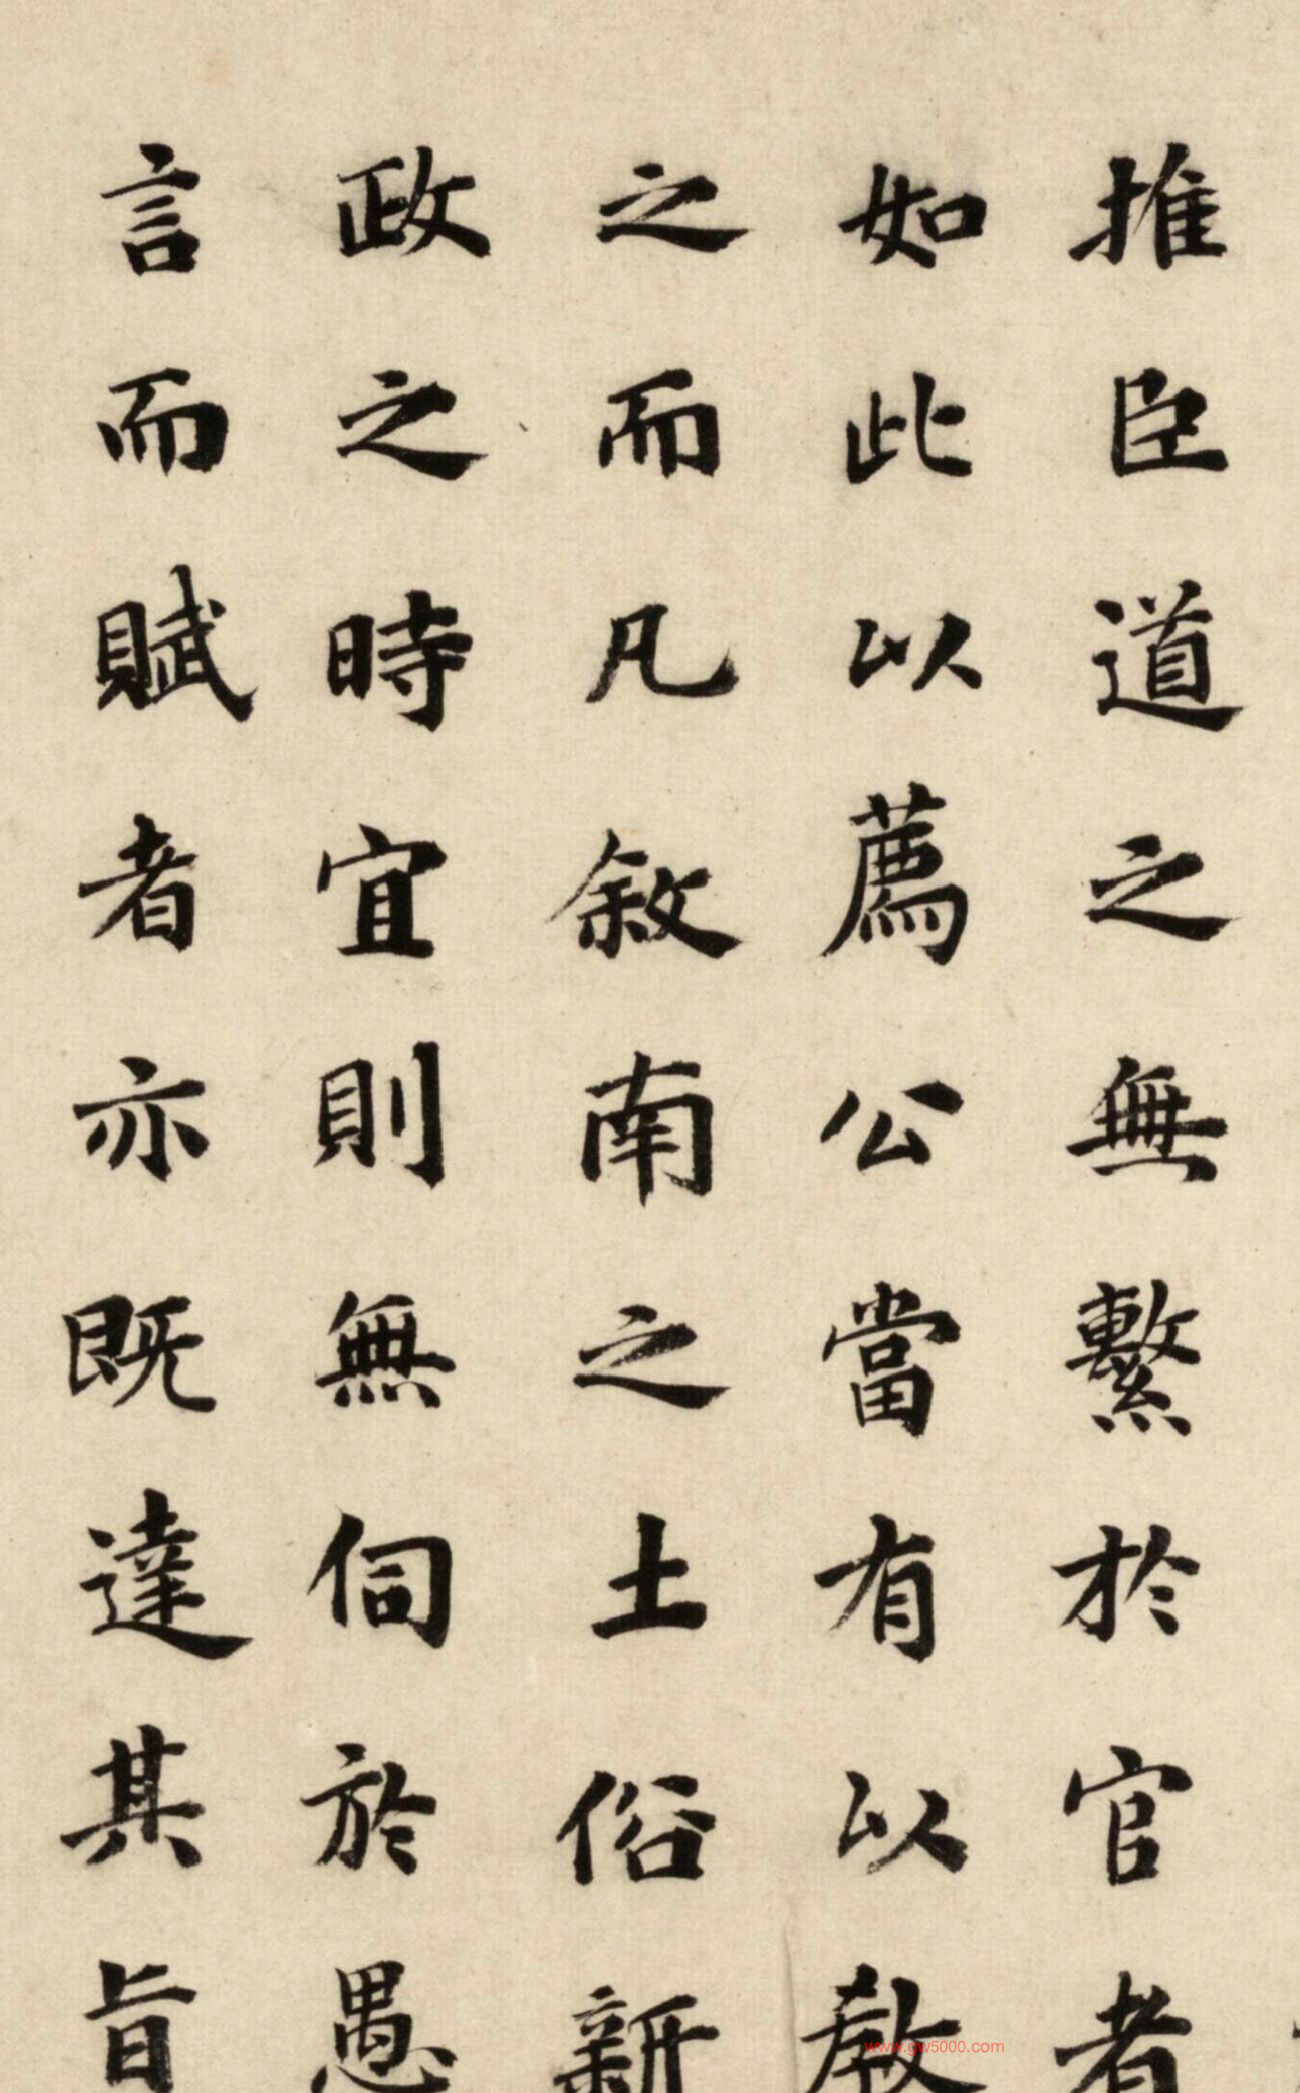 推臣道之無繫於官者
如此以薦公當有以教
之而凡敘南之土俗新
政之時宜則無伺於愚
言而賦者亦既達其旨
www.gw5000.com